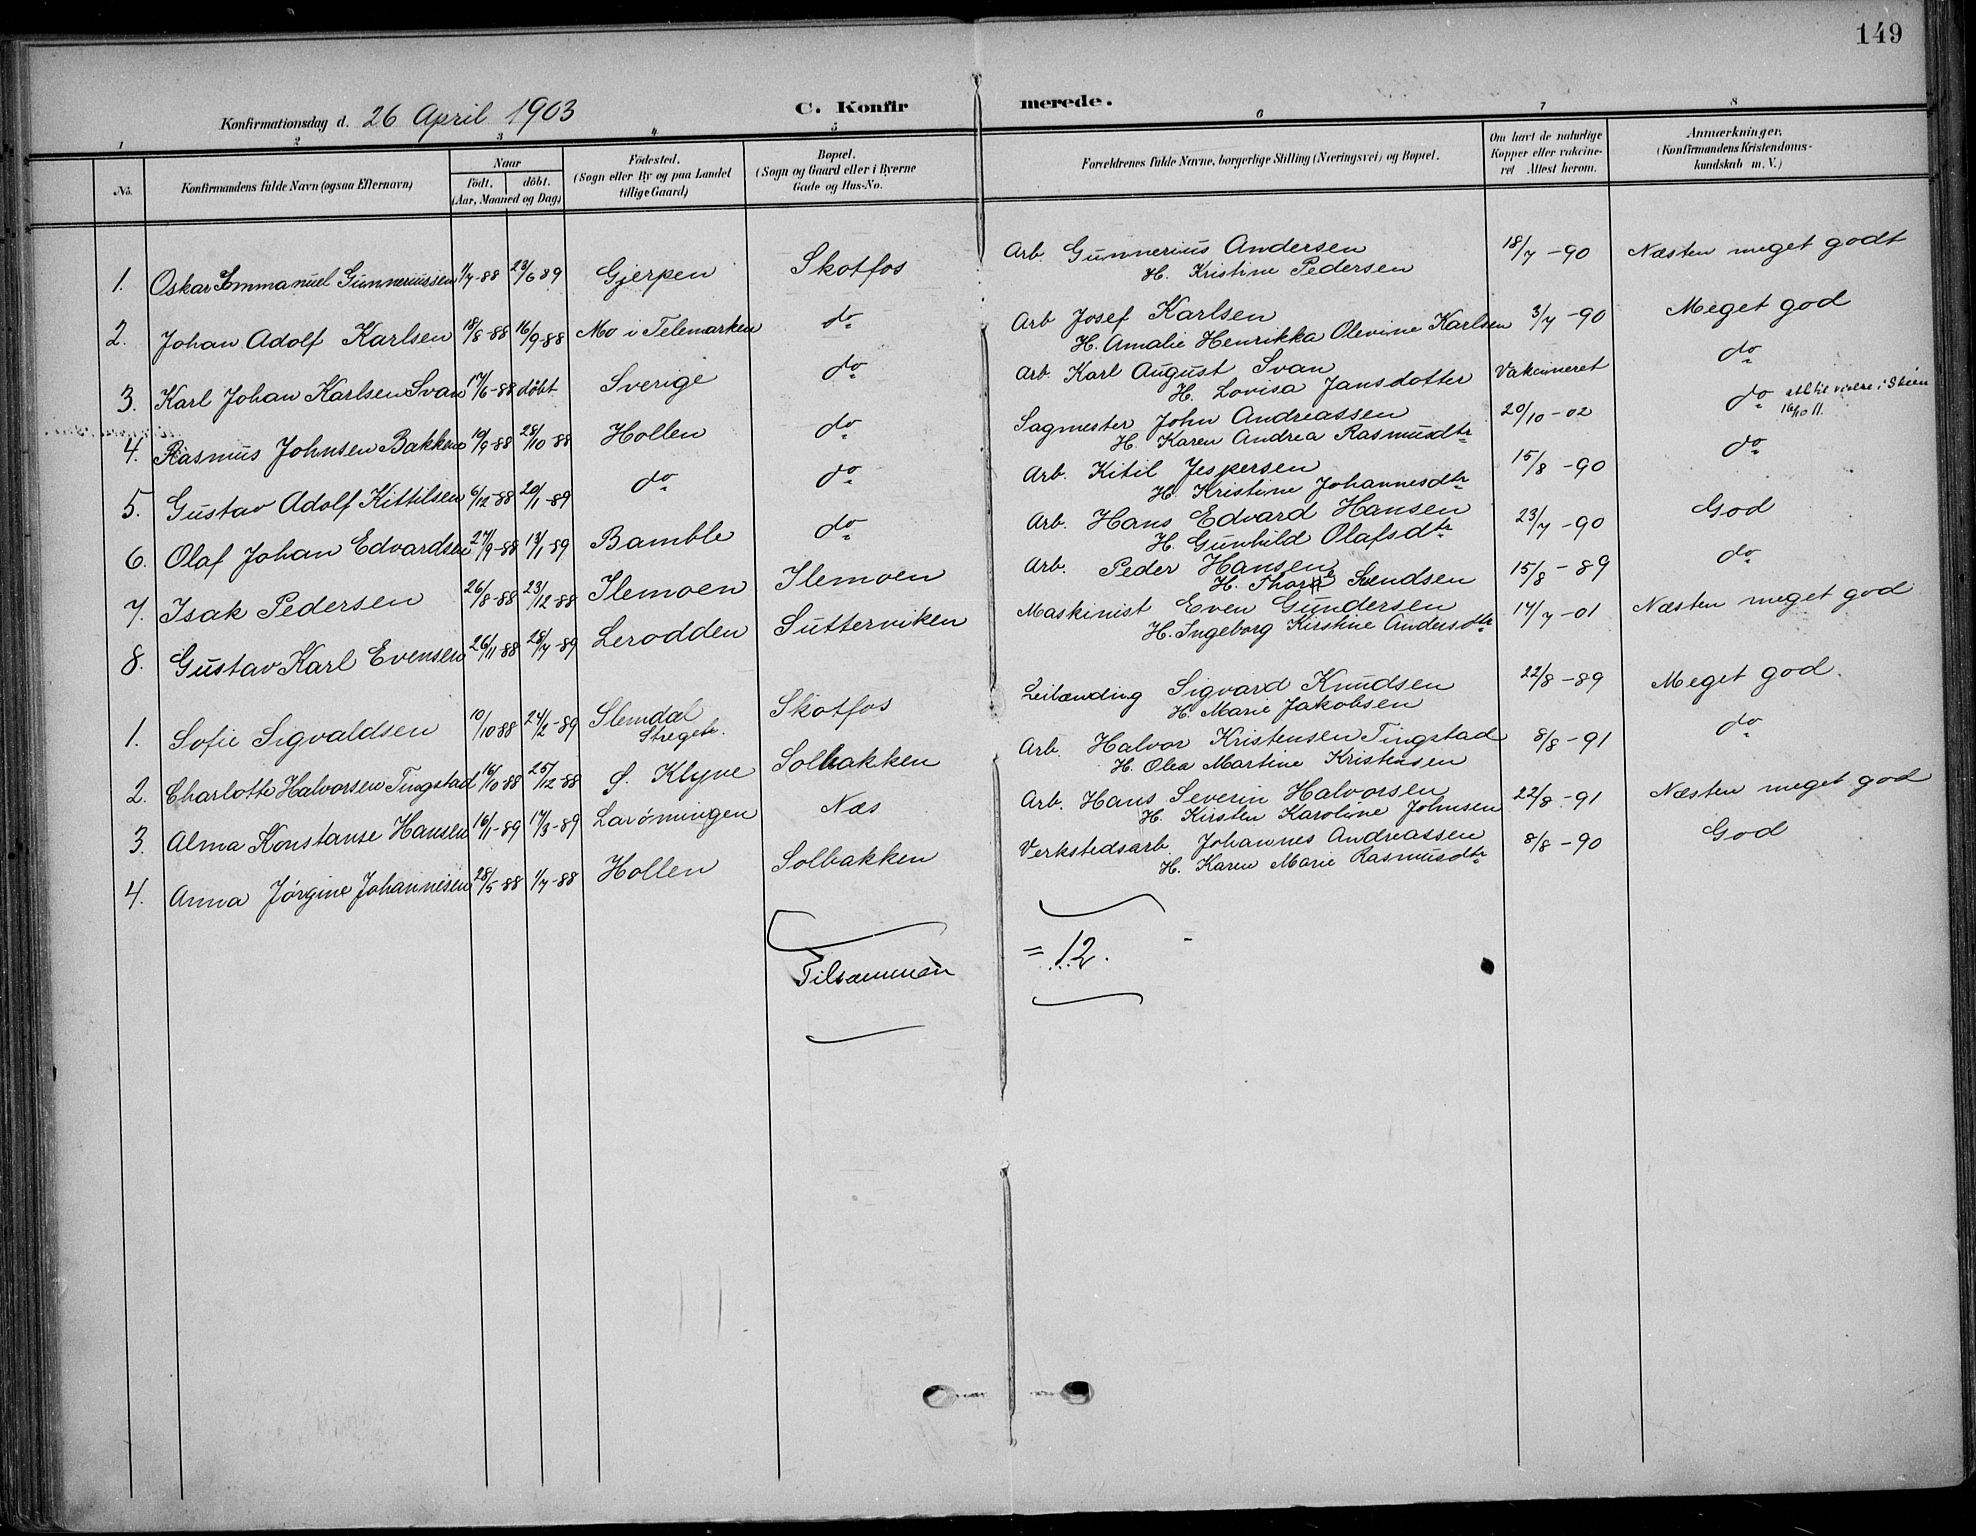 149
Konfirmationsdag d. 26 April 1903 C. Konfirmerede.
1 2 3 4 5 6 7 8
No. Konfirmandens fulde Navn (ogsaa Efternavn) Naar födt. döbt. (Aar, Maaned og Dag) Födested. (Sogn eller By og paa Landet tillige Gaard) Bopæl. (Sogn og Gaard eller i Byerne Gade og Hus-No. Forældrenes fulde Navne, borgerlige Stilling (Næringsvei) og Bopæl. Om havt de naturlige Kopper eller vakcineret Attest herom. Anmærkninger. (Konfirmandens Kristendomskundskab m. V.)
1. Oskar Emmanuel Gunneriussen 1/7-88 23/6 89 Gjerpen Skotfos Arb. Gunnerius Andersen 18/7-90 Næsten meget godt
H. Kristine Pedersen
2. Johan Adolf Karlsen 18/8-88 16/9-88 Mo i Telemarken do Arb Josef Karlsen 3/7-90 Meget god
H. Amalie Henrikka Olevine Karlsen
3. Karl Johan Karlsen Svan 17/6-88 döbt Sverige do Arb. Karl August Svan Vakcineret do
H. Lovisa Jansdotter
4. Rasmus Johnsen Bakkene 10/9-88 28/10-88 Hollen do Sagmester John Andreassen 20/10-02 do
H. Karen Andrea Rasmusdtr
5. Gustav Adolf Kittilsen 6/12-88 20/1-89 do do Arb. Kitil Jespersen 15/8-90 do
H. Kristine Johannesdtr
6. Olaf Johan Edvardsen 27/9-88 13/1-89 Bamble do Arb. Hans Edvard Hansen 23/7-90 God
H. Gunhild Olafsdtr
7. Isak Pedersen 26/8-88 23/12-88 Ilemoen Ilemoen Arb. Peder Hansen 15/8-89 do
H. Thora Svendsen
8. Gustav Karl Evensen 26/11-88 28/7-89 Lerodden Sutterviken Maskinist Even Gundersen 17/7-01 Næsten meget god
H. Ingeborg Kirstine Andersdtr
1. Sofie Sigvaldsen 10/10 88 24/2-89 Slemdal Skotfos Leilænding Sigvard Knudsen 22/8-89 Meget god.
H. Marie Jakobsen
2. Charlotte Halvorsen Tingstad 16/10-88 25/12-88 S. Klyve Solbakken Arb. Halvor Kristensen Tingstad 8/8-91 do
H. Olea Martine Kristensen
3. Alma Konstanse Hansen 16/1-89 17/3-89 Larønningen Næs Arb. Hans Severin Halvorsen 22/8-91 Næsten meget god
H. Kirsten Karoline Johnsen
4. Anna Jørgine Johannesen 28/5-88 1/7-88 Hollen Solbakken Verkstedsarb. Johannes Andreassen 8/8-90 God
H. Karen Marie Rasmusdtr
Tilsammen = 12.